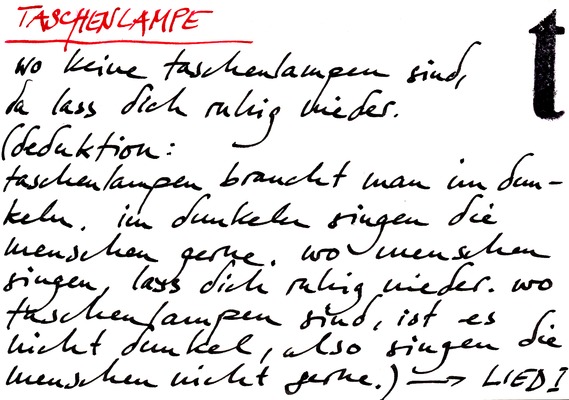 TASCHENLAMPE
t
wo keine taschenlampen sind,
da lass dich ruhig nieder.
(deduktion:
taschenlampen braucht man im dun-
keln. im dunkeln singen die
menschen gerne. wo menschen
singen, lass dich ruhig nieder. wo
taschenlampen sind, ist es
nicht dunkel, also singen die
menschen nicht gerne.) → LIED I